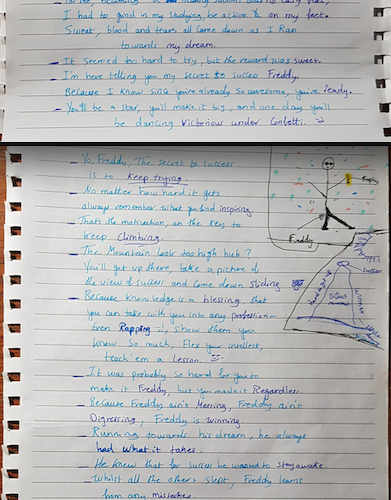 I had to grind in my studying, be active & on my feet.
Sweat, blood and tears all came down as I Ran
towards my dream.
- It seemed too hard to try, but the reward was sweet.
- I'm here telling you my secret to success Freddy.
Because I know since you're already so awesome, you're ready.
- You'll be a star, you'll make it big, and one day you'll
be dancing Victorious under Confetti.
- Yo, Freddy, The secret to success
is to keep trying.
- No matter how hard it gets
always remember what you find inspiring.
That's the motivation, an the key to
keep climbing.
- The Mountain look too high huh?
You'll get up there, take a picture of
the view of success and come down sliding.
- Because knowledge is a blessing that
you can take with you into any profession-
Even Rapping, Show them you
know So much, Flex your intellect,
teach 'em a Lesson.
- It was probably so hard for you to
make it Freddy, but you made it Regardless.
- Because Freddy ain't Messing, Freddy ain't
Digressing, Freddy is winning.
- Running towards his dream, he always
had what it takes.
- He knew that for success he wanted to stay awake.
Whilst all the others slept, Freddy learns
from any mistakes
Freddy
Success
Difficult